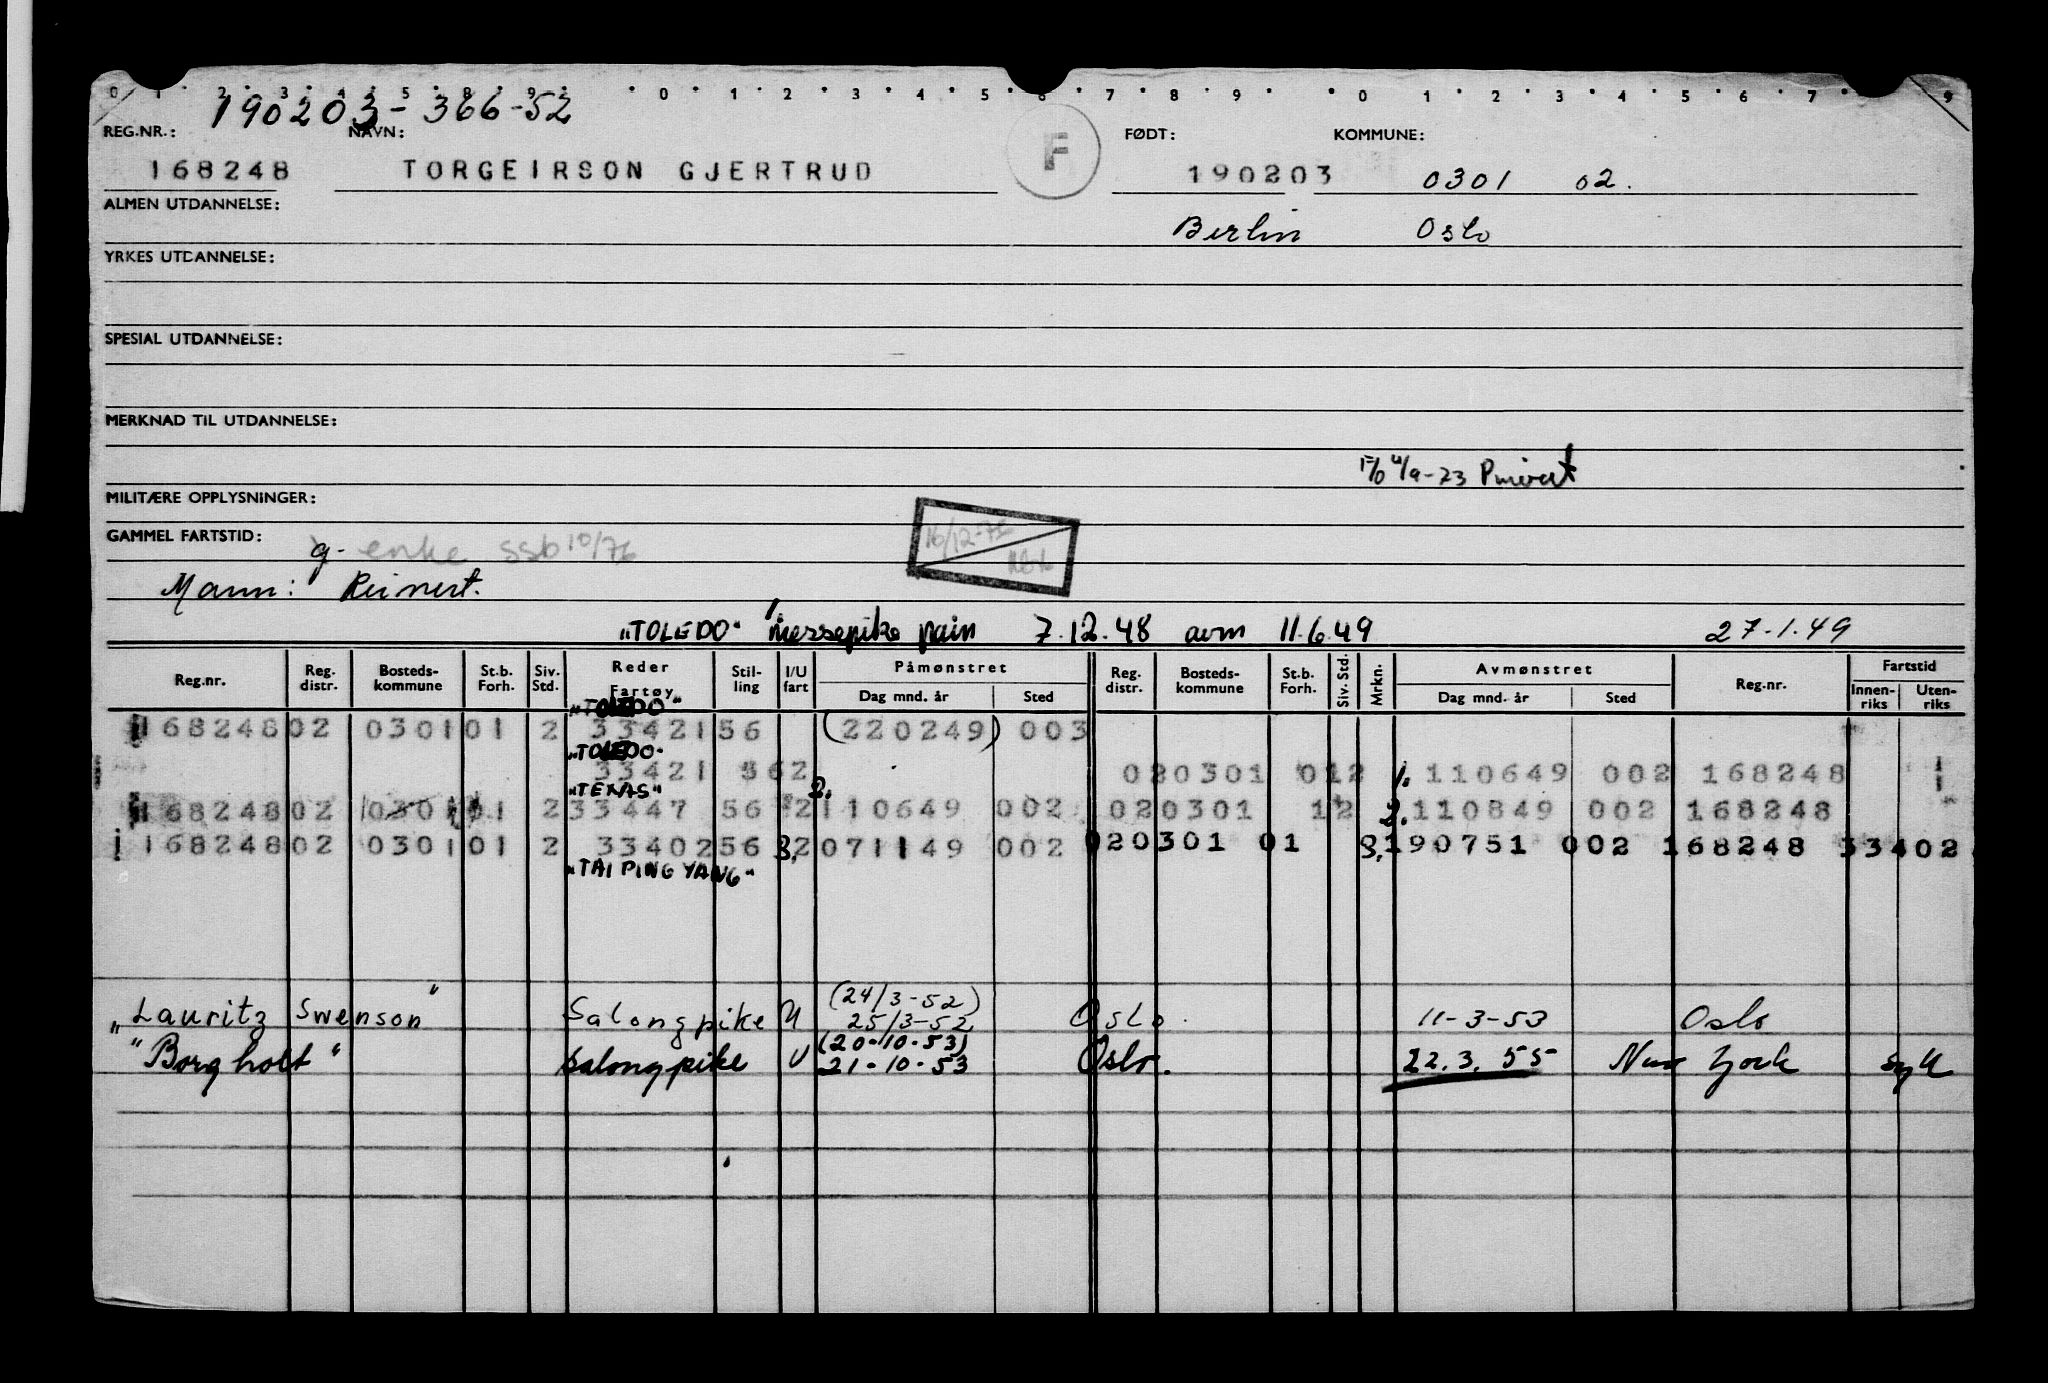 0 1 2 3 4 5 8 9 0 1 2 3 4 5 6 7 8 9 0 1 2 3 4 5 6 7 9
190203-366-52
REG.NR.: NAVN: F FØDT: KOMMUNE:
168248 TORGEIRSON GJERTRUD 190203 0301 02.
ALMEN UTDANNELSE: Berlin Oslo
YRKES UTDANNELSE:
SPESIAL UTDANNELSE:
MERKNAD TIL UTDANNELSE:
-73 Privat
MILITÆRE OPPLYSNINGER:
GAMMEL FARTSTID: g- enke ssb 10/76 16/12-75
Mann: Reinert.
"TOLEDO" messepike påm 7.12.48 avm 11.6.49 27-1.49
Reg.nr. Reg. distr. Bosteds-kommune St.b. Forh. Siv. Std. Reder Fartøy Stil-ling I/U fart Påmønstret Dag mnd. år Sted Reg. distr. Bosteds-kommune St.b. Forh. Siv. Std. Mrkn. Avmønstret Dag mnd. år Sted Reg.nr. Fartstid Innen-riks Uten-riks
"TOLEDO"
168248 02 0301 01 2 33421 56 (220249) 003
"TOLEDO"
33421 56 2 020301 01 2 1. 110649 002 168248
"TEXAS"
168248 02 0301 01 2 33447 56 2 2. 110649 002 020301 1 2 2. 110849 002 168248
168248 02 0301 01 2 33402 56 3, 2 071149 002 020301 01 3, 190751 002 168248 33402
"TAI PING YANG"
(24/3-52)
"Lauritz Swenson" Salongpike U 25/3-52 Oslo. 11-3-53 Oslo
(20-10-53)
"Borgholt" Salongpike U 21-10-53 Oslo. 22.3.55 New York syk